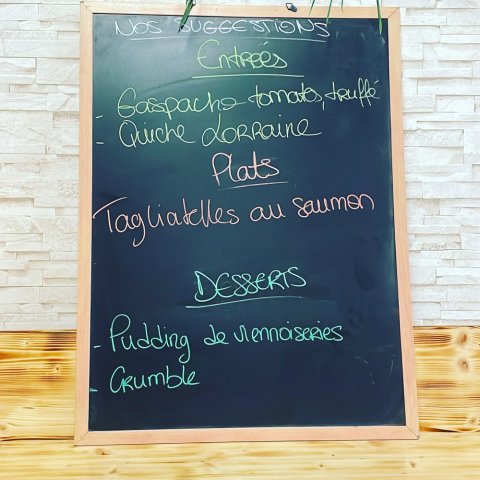 NOS SUGGESTIONS
Entreés
- Gaspacho tomates, truffé
- Quiche Lorraine
Plats
Tagliatelles au saumon
DESSERTS
- Pudding de viennoiseries
- Crumble